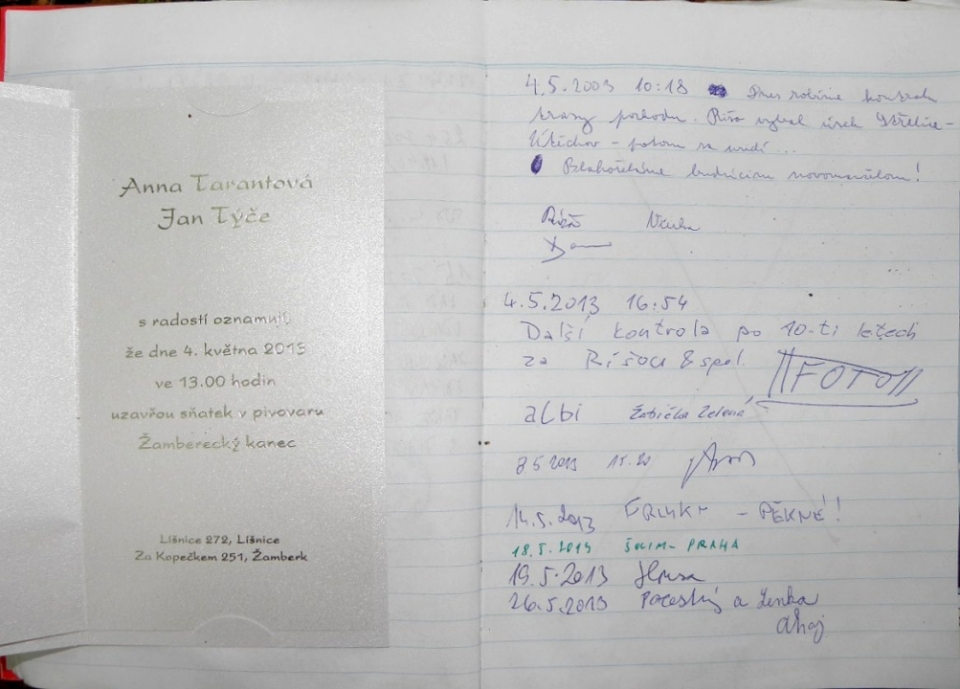 Anna Tarantová
Jan Týče
s radostí oznamují
že dne 4. května 2013
ve 13.00 hodin
uzavřou sňatek v pivovaru
Žamberecký kanec
Líšnice 272, Líšnice
Za Kopečkem 251, Žamberk
4.5.2003 10:18 Dnes robíme
trasy pochodu. Ríša vybral úsek
- potom sa uvidí...
Blahoželáme budúcim novomanželom!
4.5.2013 16:54
Další kontrola po 10-ti letech
za Ríšou & spol.
FOTO
albi Žabička Zelená
8 5 2013 15.20
14.5.2013 - PĚKNÉ!!
18.5.2013 - PRAHA
19.5.2013
26.5.2013 a Lenka
ahoj